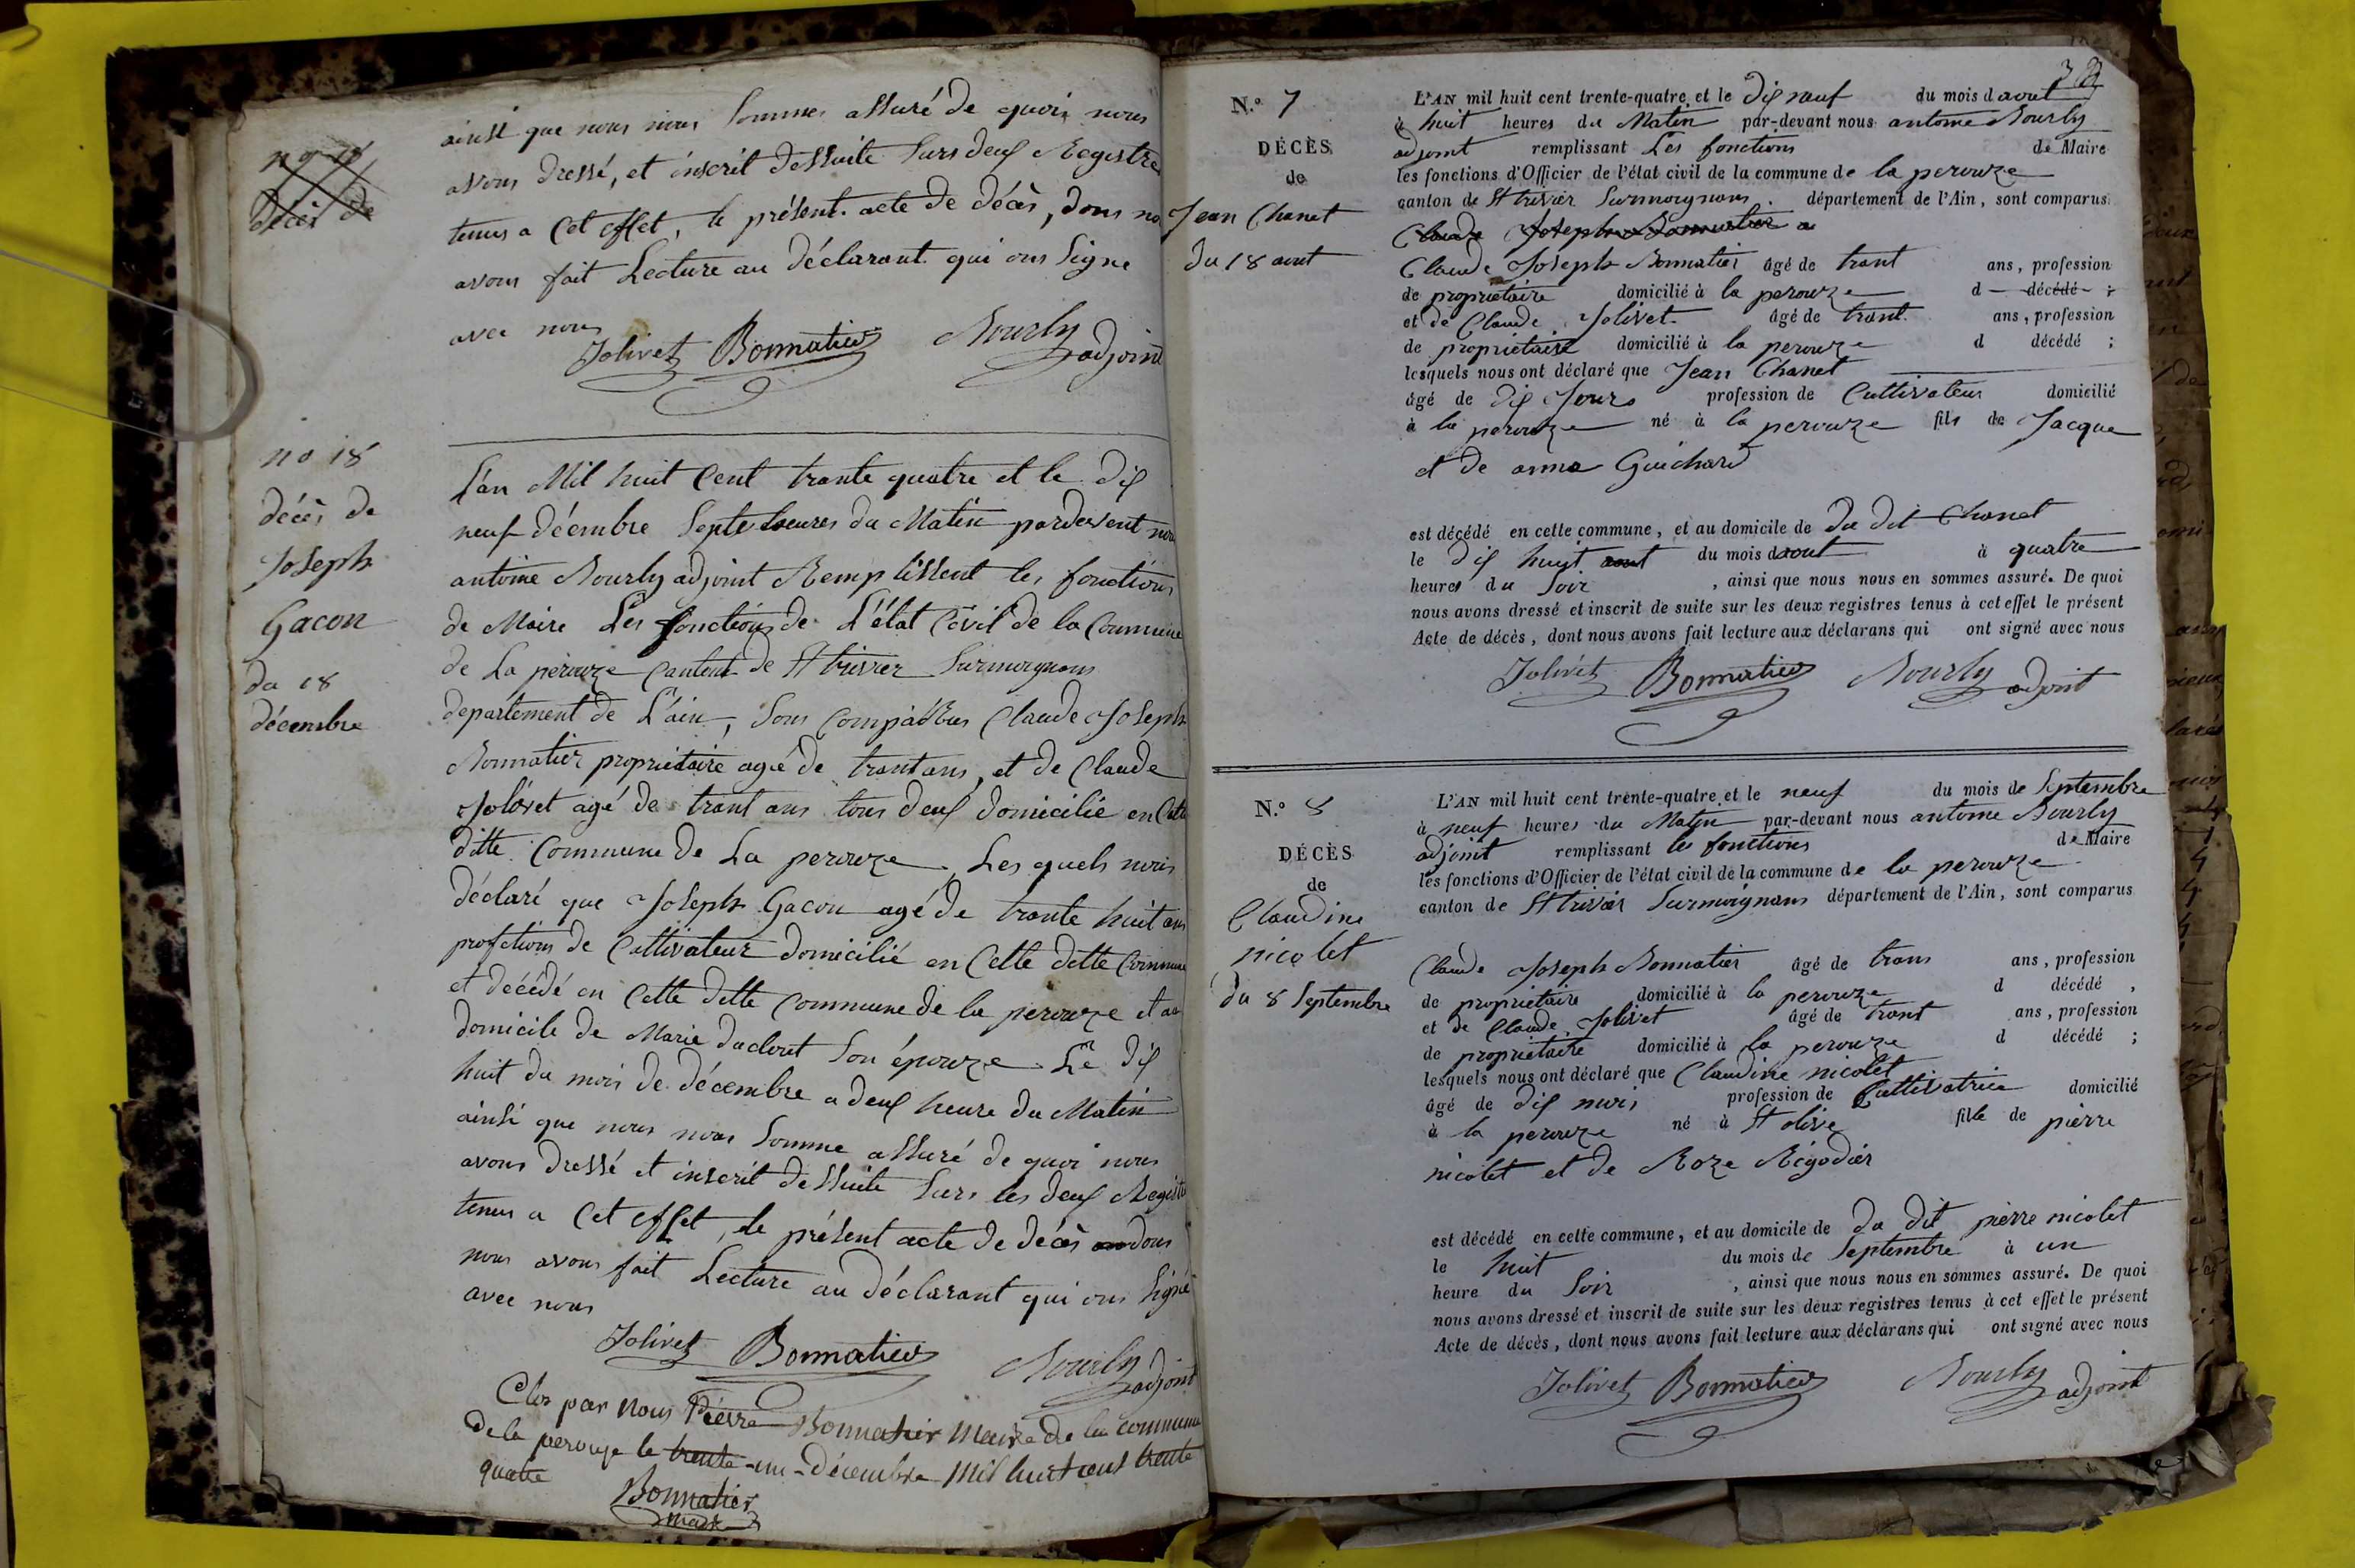 ainsi que nous nous sommes assuré de quoi nous
avons dressé, et inscrit dessuite surs deux Registre
tenus a Cet effet, le présent acte de décès, dons no
avons fait Lecture au déclarant qui ons Signe
avec nous
Jolivet Bonnatier Nourly adjoint
décès de
no 18
décès de
Joseph
Gacon
du 18
décembre
L'an Mil huit Cent trante quatre et le dix
neuf décembre Septe heures du Matin pardevent nou
antoine Nourly adjoint Remplissent les fonctions
de Maire Les fonctions de L'état Civil de la Commune
de La perouze Canton de St trivier Surmoignans
departement de L'ain, Sons Comparus Claude Joseph
Bonnatier propriétaire agé de trant ans, et de Claude
Jolivet agé de trant ans tous deux domicilie en Cette
ditte Commune de La perouze, Les quels nous
déclaré que Joseph Gacon agé de trante huit ans
profetions de Cultivateur domicilié en Cette ditte Commune
et décédé en Cette ditte Commune de la perouze et au
domicile de Marie ducloret Son épouze Le dix
huit du mois de décembre a deux heure du Matin
ainsi que nous nous Somme assuré de quoi nous
avons dressé et inscrit dessuite Surs les deux Registre
tenus a Cet effet, le présent acte de décès dons
nous avons fait Lecture au déclarant qui ons Signé
avec nous
Jolivet Bonnatier Nourly adjoint
Clos par nous Pierre Bonnatier Maire de la commune
de la perouze le trente-un-décembre mil huit cent trente
quatre
Bonnatier
maire
N.º 7
DÉCÈS
de
Jean Chanet
du 18 aout
L'AN mil huit cent trente-quatre et le dix neuf du mois d aout
à huit heures du Matin par-devant nous antoine Nourly
adjoint remplissant Les fonctions de Maire
les fonctions d'Officier de l'état civil de la commune de la perouze
canton de St trivier Surmoignans département de l'Ain, sont comparus
Claude Joseph Bonnatier a
Claude Joseph Bonnatier âgé de trant ans, profession
de propriétaire domicilié à la perouze d décédé ;
et de Claude Jolivet âgé de trant ans, profession
de propriétaire domicilié à la perouze d décédé ;
lesquels nous ont déclaré que Jean Chanet
âgé de dix Jours profession de Cultivateur domicilié
à la perouze né à la perouze fils de Jacque
et de anne Guichard
est décédé en cette commune, et au domicile de du dit Chanet
le dix huit aout du mois daout à quatre
heures du Soir , ainsi que nous nous en sommes assuré. De quoi
nous avons dressé et inscrit de suite sur les deux registres tenus à cet effet le présent
Acte de décès, dont nous avons fait lecture aux déclarans qui ont signé avec nous
Jolivet Bonnatier Nourly adjoint
N.º 8
DÉCÈS
de
Claudine
nicolet
du 8 Septembre
L'AN mil huit cent trente-quatre et le neuf du mois de Septembre
à neuf heures du Matin par-devant nous antoine Nourly
adjoint remplissant les fonctions de Maire
les fonctions d'Officier de l'état civil de la commune de la perouze
canton de St trivier Surmoignans département de l'Ain, sont comparus
Claude Joseph Bonnatier âgé de trans ans, profession
de propriétaire domicilié à la perouze d décédé ,
et de Claude Jolivet âgé de trant ans, profession
de propriétaire domicilié à la perouze d décédé ;
lesquels nous ont déclaré que Claudine nicolet
âgé de dix mois profession de Cultivatrice domicilié
à la perouze né à St olive fille de pierre
nicolet et de Roze Régodier
est décédé en cette commune, et au domicile de du dit pierre nicolet
le huit du mois de Septembre à un
heure du Soir , ainsi que nous nous en sommes assuré. De quoi
nous avons dressé et inscrit de suite sur les deux registres tenus à cet effet le présent
Acte de décès, dont nous avons fait lecture aux déclarans qui ont signé avec nous
Jolivet Bonnatier Nourly adjoint